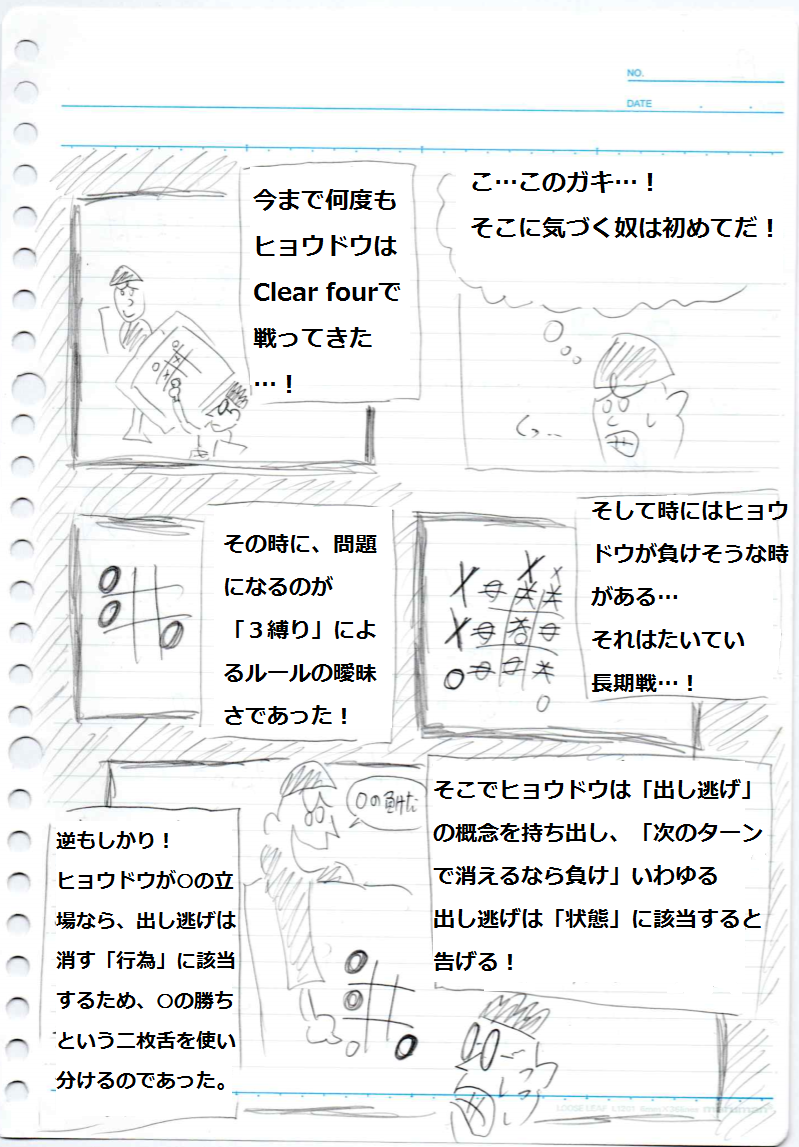 NO.
DATE
こ…このガキ…！
そこに気づく奴は初めてだ！
くっ…
今まで何度も
ヒョウドウは
Clear fourで
戦ってきた
…！
そして時にはヒョウ
ドウが負けそうな時
がある…
それはたいてい
長期戦…！
その時に、問題
になるのが
「３縛り」によ
るルールの曖昧
さであった！
そこでヒョウドウは「出し逃げ」
の概念を持ち出し、「次のターン
で消えるなら負け」いわゆる
出し逃げは「状態」に該当すると
告げる！
○の負けだ
逆もしかり！
ヒョウドウが○の立
場なら、出し逃げは
消す「行為」に該当
するため、○の勝ち
という二枚舌を使い
分けるのであった。